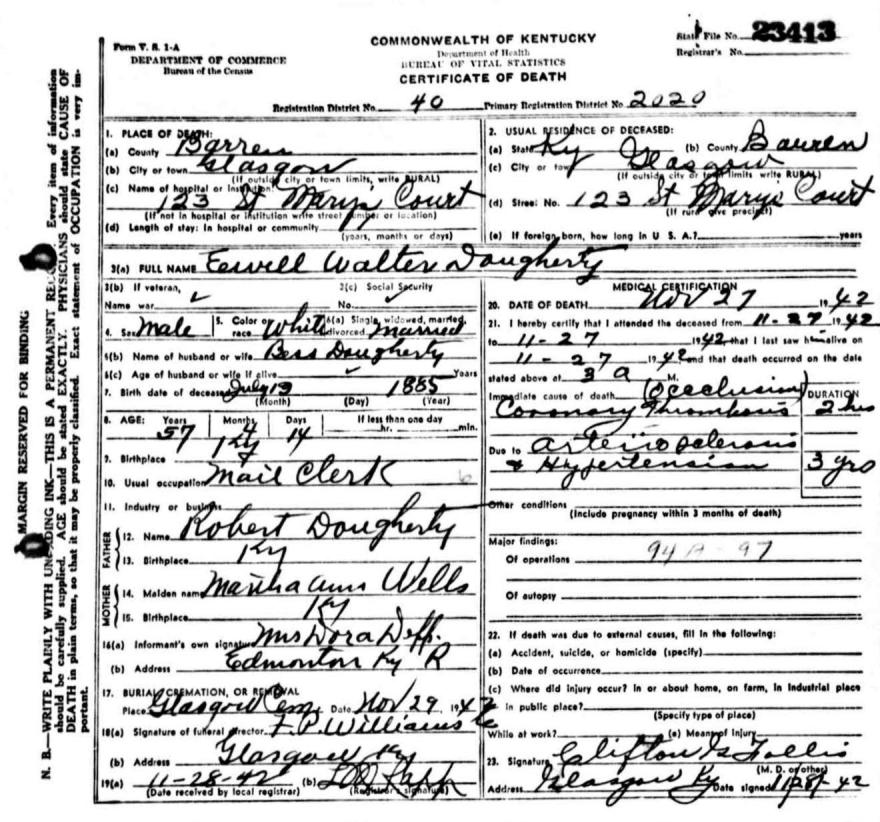 Form V. S. 1-A
DEPARTMENT OF COMMERCE
Bureau of the Census
COMMONWEALTH OF KENTUCKY
Department of Health
BUREAU OF VITAL STATISTICS
CERTIFICATE OF DEATH
State File No. 23413
Registrar's No.
Registration District No. 40 Primary Registration District No. 2020
MARGIN RESERVED FOR BINDING
N. B.—WRITE PLAINLY WITH UNFADING INK—THIS IS A PERMANENT Every item of information
should be carefully supplied. AGE should be stated EXACTLY. PHYSICIANS should state CAUSE OF
DEATH in plain terms, so that it may be properly classified. Exact statement of OCCUPATION is very im-
portant.
1. PLACE OF DEATH:
(a) County Barren
(b) City or town Glasgow
(If outside city or town limits, write RURAL)
(c) Name of hospital or institution:
123 St Mary's Court
(If not in hospital or institution write street number or location)
(d) Length of stay: In hospital or community
(years, months or days)
2. USUAL RESIDENCE OF DECEASED:
(a) State Ky (b) County Barren
(c) City or town Glasgow
(If outside city or town limits write RURAL)
(d) Street No. 123 St Mary's Court
(If rural give precinct)
(e) If foreign born, how long in U S. A.? years
3(a) FULL NAME Ewell Walter Dougherty
3(b) If veteran,
Name war
3(c) Social Security
No.
4. Sex Male 5. Color or race White 6(a) Single, widowed, married, divorced Married
6(b) Name of husband or wife Bess Dougherty
6(c) Age of husband or wife if alive Years
7. Birth date of deceased July 13 1885
(Month) (Day) (Year)
8. AGE: Years Months Days If less than one day
57 4 14 hr. min.
9. Birthplace Ky
10. Usual occupation Mail Clerk
11. Industry or business
FATHER
12. Name Robert Dougherty
13. Birthplace Ky
MOTHER
14. Maiden name Martha Ann Wells
15. Birthplace Ky
16(a) Informant's own signature Mrs Dora Depp.
(b) Address Edmonton Ky R
17. BURIAL, CREMATION, OR REMOVAL
Place Glasgow Cem Date Nov 29, 1942
18(a) Signature of funeral director F. P. Williams
(b) Address Glasgow Ky
19(a) 11-28-42 (b)
(Date received by local registrar) (Registrar's signature)
MEDICAL CERTIFICATION
20. DATE OF DEATH Nov 27 1942
21. I hereby certify that I attended the deceased from 11-27 1942
to 11-27 1942 that I last saw him alive on
11-27 1942 and that death occurred on the date
stated above at 3 a M.
Immediate cause of death (occlusion) DURATION
Coronary Thrombosis 2 hrs
Due to arteriosclerosis
& Hypertension 3 yrs
Other conditions
(Include pregnancy within 3 months of death)
Major findings:
Of operations 94A-97
Of autopsy
22. If death was due to external causes, fill in the following:
(a) Accident, suicide, or homicide (specify)
(b) Date of occurrence
(c) Where did injury occur? In or about home, on farm, in industrial place
in public place?
(Specify type of place)
While at work? (e) Means of injury
23. Signature Clifton G Follis
(M. D. or other)
Address Glasgow Ky Date signed 11/28/42